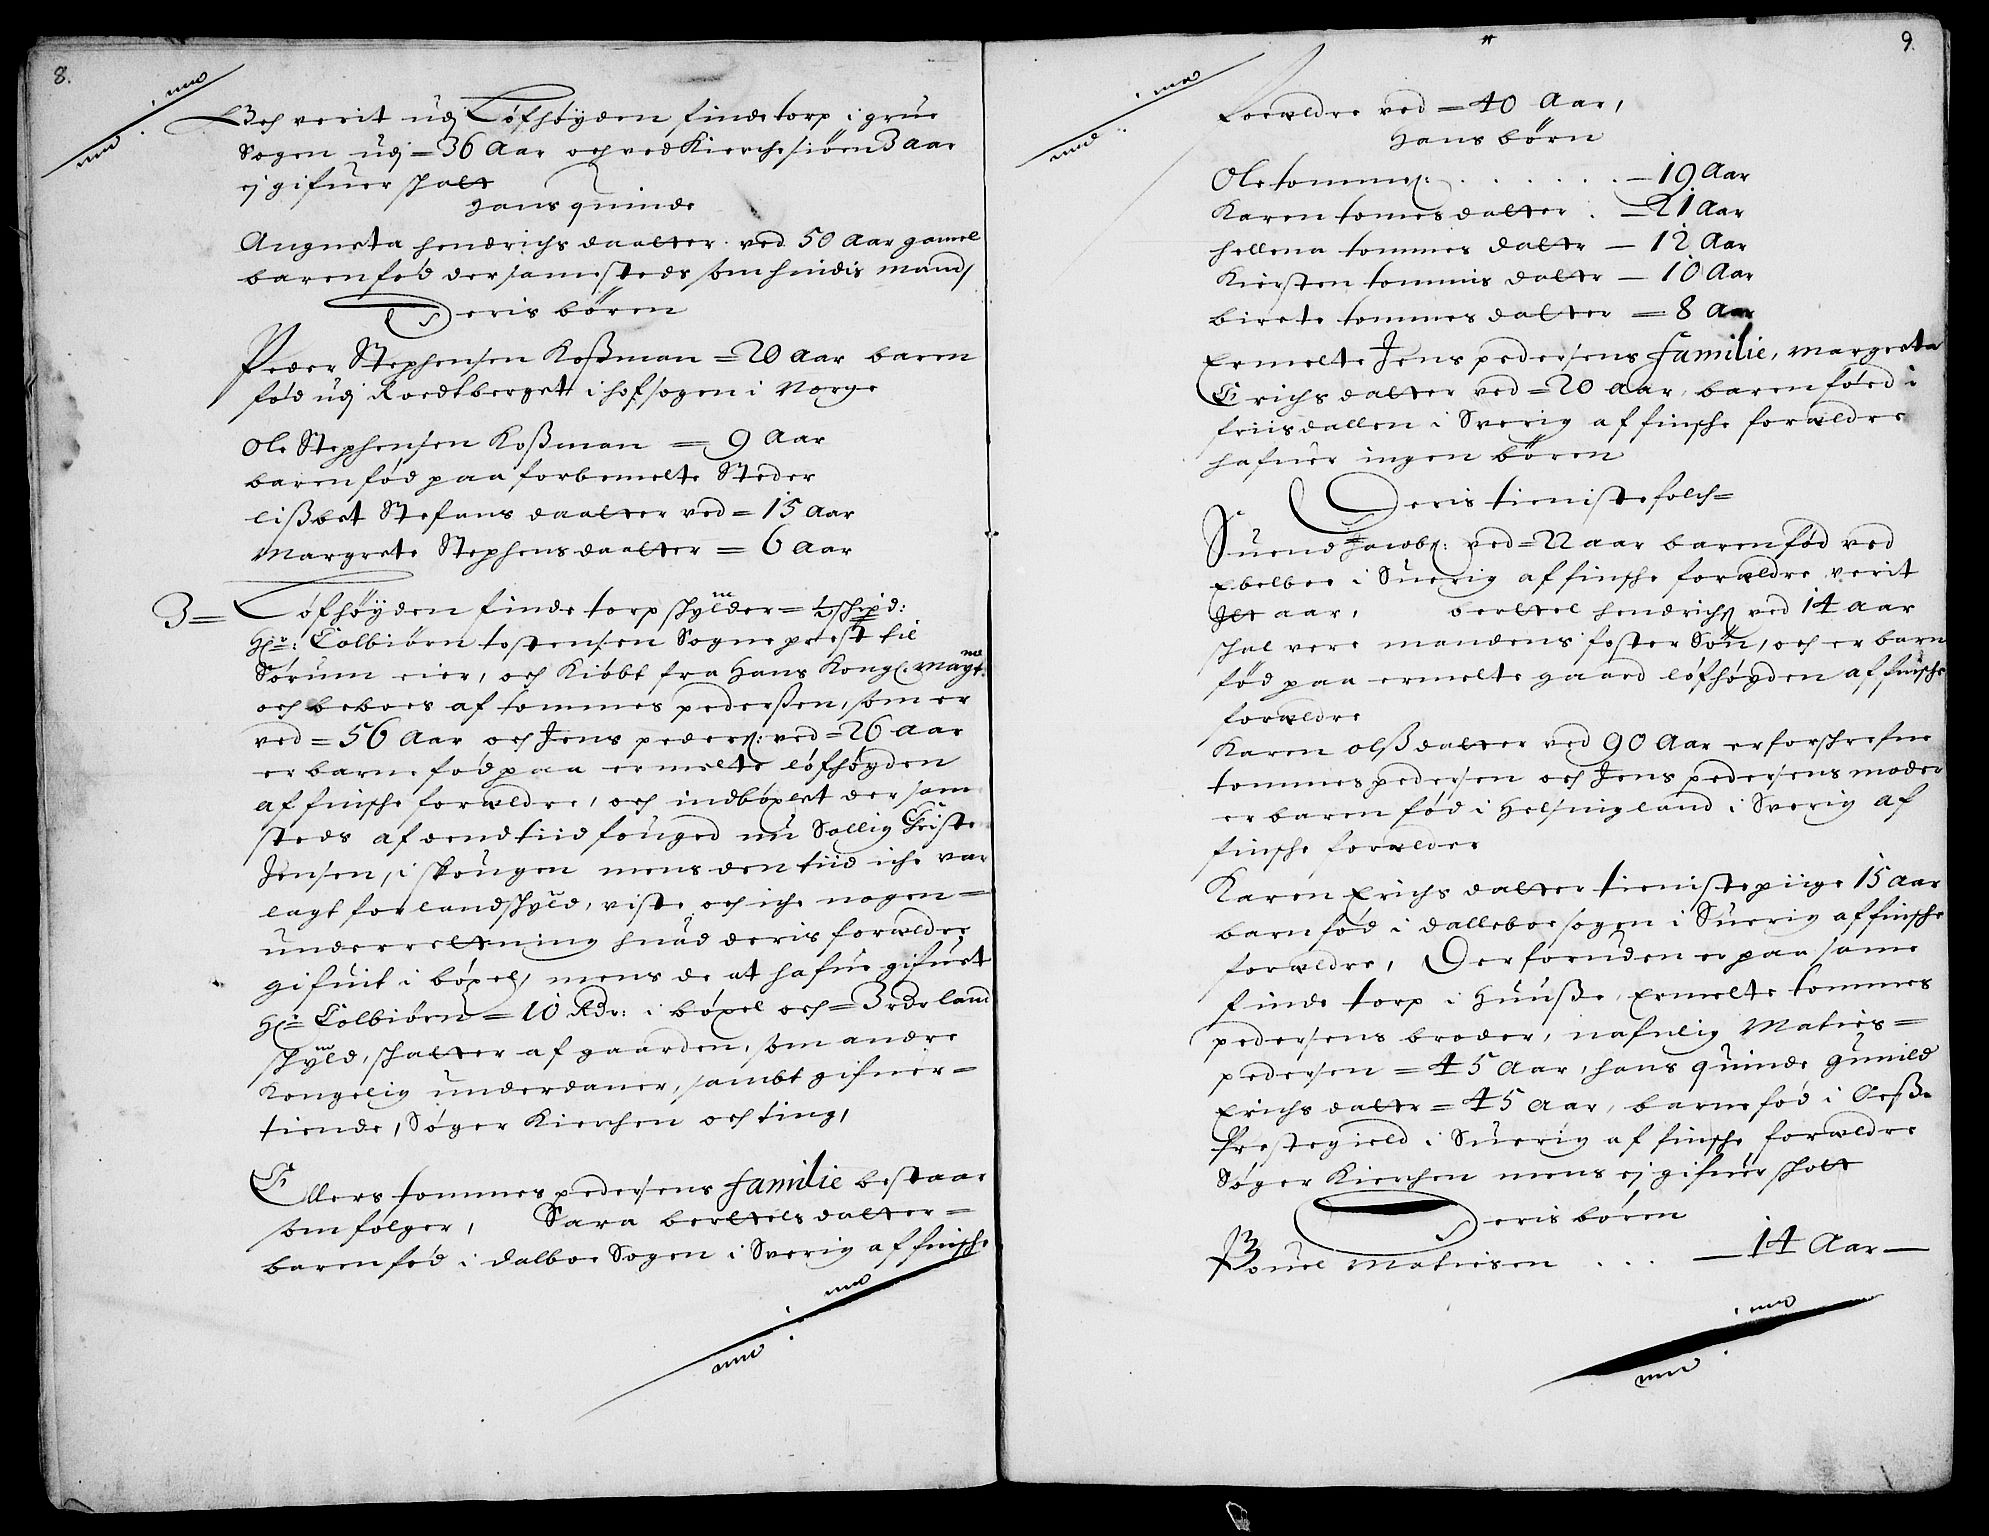 8.
Och verit udj Løfhøyden findetorp i grue
Sogen udj = 36 Aar och ved Kierchesiøen 3 aar
ej gifuer schalt
Hans quinde
Angneta hendrichs daatter ved 50 Aar gamel
baren fød der samesteds som hindis mand,
Deris bören
Peder Stephensen Koßman = 20 aar baren
fød udj Roedtberget i hofsogen i Norge
Ole Stephensen Koßman = 9 Aar
baren fød paa forbemelte Steder
lißbet Stefans daatter ved = 15 Aar
Margrete Stephens daatter = 6 Aar
3 = Løfhøyden finde torp schylder = ½ schipd:
Hr: Colbiörn tostensen Sogneprest til
Sørum eier, och Kiøbt fra Hans Kongl. Maytt:
och beboes af tommes pederßen, som er
ved = 56 Aar och Jens peders: ved = 26 Aar
er barnefød paa ermelte løfhøyden
af finsche forældre, och indbøxlet der sam
steds af dend tiid fouged nu Sallig Christe
Jensen, i skougen mens den tiid iche var
lagt for landschyld, viste och iche nogen =
underretning huad deris forældre
gifuit i bøxel, mens de at hafue gifuet
Hr: Colbiörn = 10 Rdr: i bøxel och = 3 rdr land
schyld, schatter af gaarden, som andre
Kongelig underdaner, sambt gifuer =
tiende, Søger Kierchen och ting,
Ellers tommes pedersens familie bestaar
som følger, Sara berttels datter =
baren fød i dalboe Sogen i Sverig af finsche
9.
Forældre ved = 40 Aar,
Hans börn
Ole tommes: . . . . . . — 19 Aar
Karen tomes datter . — 21 Aar
hellena tommes datter — 12 Aar
Kiersten tommis datter — 10 Aar
birete tommes datter = 8 Aar
Ermelte Jens pedersens familie, margreta
Erichs datter ved = 20 aar, baren føed i
friisdallen i Sverig af finsche forældre
hafuer ingen bören
Deris tienistefolch =
Suend Jacobs: ved = 22 aar baren fød ved
Ebelboe i Suerig af finsche forældre verit
Jtt aar, berttel hendrichs: ved 14 aar
schal vere mandens foster Sön, och er barn
född paa ermelte gaard løfhøyden af finsche
forældre
Karen olßdatter ved 90 Aar er forschrefne
tommes pedersen och Jens pedersens moder
er baren fød i Helsingland i Sverig af
finsche forældre
Karen Erichs datter tienistepiige 15 aar
barn fød i dalleboe sogen i Suerig af finsche
forældre, Der foruden er paa same
finde torp i Huuße, Ermelte tommes
pedersens broder, nafnlig Maties =
pedersen = 45 Aar, hans quinde gunild
Erichs datter = 45 Aar, barnefød i Aeßle
Prestegield i Suerig af finsche forældre
Søger Kierchen mens ej gifuer schatt
Deris bören
Pouel Matiesen . . . — 14 Aar —